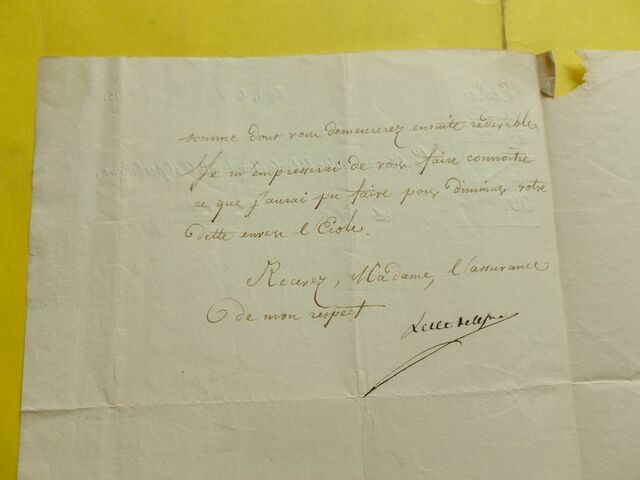 somme dont vous demeurerez ensuite redevable.
Je m'empresserai de vous faire connoître
ce que j'aurai pu faire pour diminuer votre
dette envers l'Ecole.
Recevez, Madame, l'assurance
de mon respect